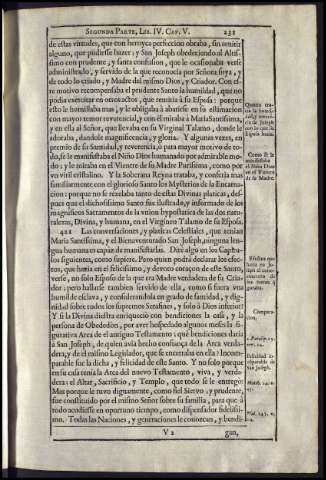 SEGUNDA PARTE, LIB. IV. CAP. V. 231
de estas virtudes, que con heroyca perfeccion obraba, sin omitir
alguno, que pudiesse hazer: y San Joseph obedeciendo al Altis-
simo con prudente, y santa confusion, que le ocasionaba verse
administrado, y servido de la que reconocia por Señora suya, y
de todo lo criado, y Madre del mismo Dios, y Criador. Con es-
te motivo recompensaba el prudente Santo la humildad, que no
podia exercitar en otros actos, que remitia à su Esposa: porque
esto le humillaba mas, y le obligaba à abatirse en su estimacion
con mayor temor reverencial, y con èl miraba à Maria Santissima,
y en ella al Señor, que llevaba en su Virginal Talamo, donde le
adoraba, dandole magnificencia, y gloria. Y algunas vezes, en
premio de su Santidad, y reverencia, ò para mayor motivo de to-
do, se le manifestaba el Niño Dios humanado por admirable mo-
do: y le miraba en el Vientre de su Madre Purissima, como por
vn viril cristalino. Y la Soberana Reyna trataba, y conferia mas
familiarmente con el glorioso Santo los Mysterios de la Encarna-
cion: porque no se recataba tanto de estas Divinas platicas, des-
pues que el dichosissimo Santo fue ilustrado, y informado de los
magnificos Sacramentos de la vnion hypostatica de las dos natu-
ralezas, Divina, y humana, en el Virginal Talamo de su Esposa.
421 Las conversaciones, y platicas Celestiales, que tenian
Maria Santissima, y el Bienaventurado San Joseph, ninguna len-
gua humana es capaz de manifestarlas. Dirè algo en los Capitu-
los siguientes, como supiere. Pero quien podrà declarar los efec-
tos, que hazia en el dulcissimo, y devoto coraçon de este Santo
verse, no solo Esposo de la que era Madre verdadera de su Cria-
dor: pero hallarse tambien servido de ella, como si fuera vna
humilde esclava, y considerandola en grado de santidad, y dig-
nidad sobre todos los supremos Serafines, y solo à Dios inferior?
Y si la Divina diestra enriqueciò con bendiciones la casa, y la
persona de Obededon, por aver hospedado algunos meses la fi-
gurativa Arca del antiguo Testamento: què bendiciones daria
à San Joseph, de quien avia hecho confiança de la Arca verda-
dera, y de el mismo Legislador, que se encerraba en ella? Incom-
parable fue la dicha, y felicidad de este Santo. Y no solo porque
en su casa tenia la Arca del nuevo Testamento, viva, y verda-
dera: el Altar, Sacrificio, y Templo, que todo se le entregò:
Mas porque le tuvo dignamente, como fiel Siervo, y prudente,
fue constituido por el mismo Señor sobre su familia, para que à
todo acudiesse en oportuno tiempo, como dispensador fidelissi-
mo. Todas las Naciones, y generaciones le conozcan, y bendi-
V 2 gan,
Como se le
manifestaba
el Niño Dios
en el Vientre
de su Madre.
Compara-
cion.
Felicidad in-
comparable de
San Joseph.